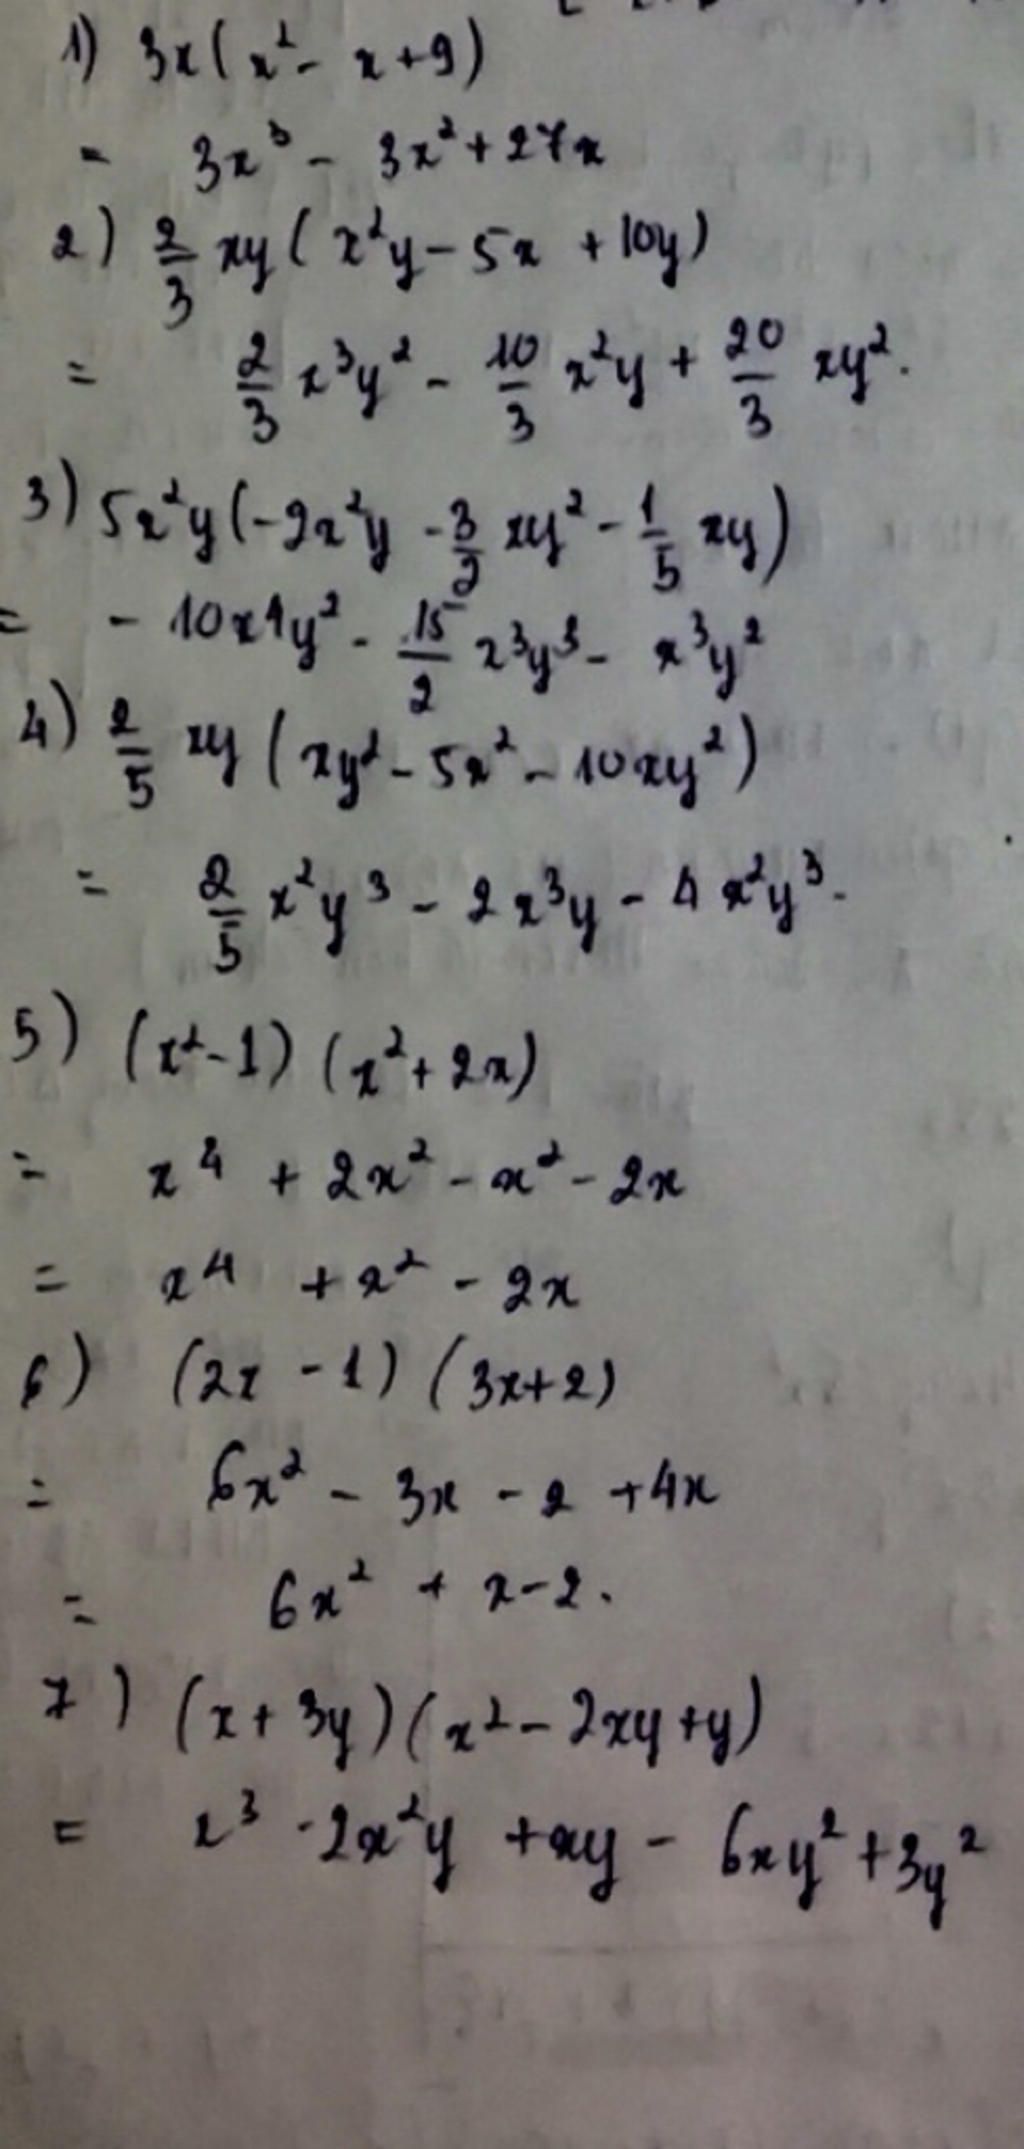 1) 3x(x² - x + 9)
= 3x³ - 3x² + 27x
2) 2/3 xy(x²y - 5x + 10y)
= 2/3 x³y² - 10/3 x²y + 20/3 xy².
3) 5x²y(-2x²y - 3/2 xy² - 1/5 xy)
= - 10x⁴y² - 15/2 x³y³ - x³y²
4) 2/5 xy (xy² - 5x² - 10xy²)
= 2/5 x²y³ - 2x³y - 4x²y³.
5) (x² - 1) (x² + 2x)
= x⁴ + 2x² - x² - 2x
= x⁴ + x² - 2x
6) (2x - 1) (3x + 2)
= 6x² - 3x - 2 + 4x
= 6x² + x - 2.
7) (x + 3y)(x² - 2xy + y)
= x³ - 2x²y + xy - 6xy² + 3y²